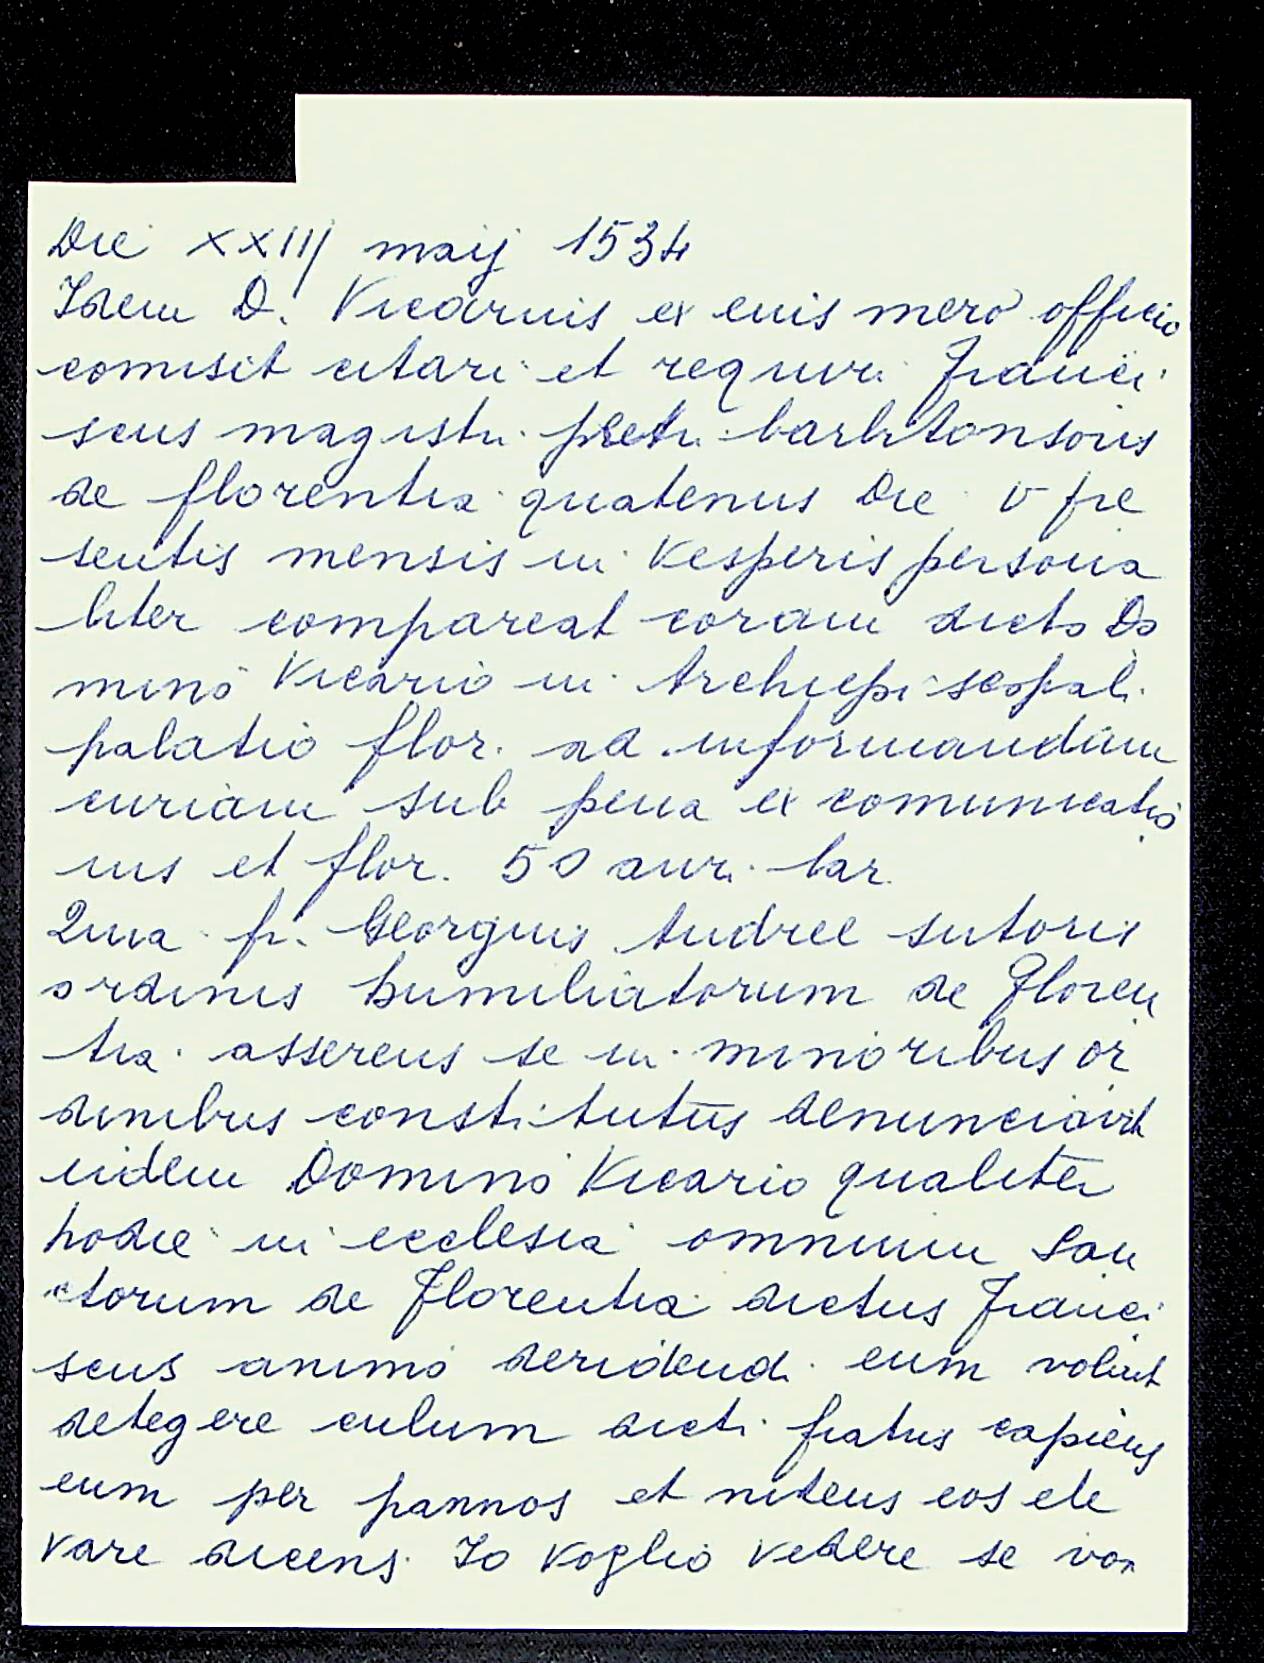 Die XXIIJ maij 1534
Idem D. Vicarius ex euis mero officio
comisit citari et requiri Franci
scus magistri pretri barbitonsoris
de florentia quatenus die V pre
sentis mensis in Vesperis persona
liter compareat coram dicto Do
mino Vicario in Archiepi scopali
palatio flor. ad informandam
curiam sub pena ex comunicatio
nis et flor. 50 aur. lar.
Quia fr. Georgius Andree sutoris
ordinis humiliatorum de Floren
tia asserens se in minoribus or
dinibus constitutus denunciavit
eidem Domino Vicario qualiter
hodie in ecclesia omnium San
ctorum de Florentia dictus Franci
scus animo deridendi eum voluit
detegere culum dicti fratris capiens
eum per pannos et nitens eos ele
vare dicens Io voglio vedere se voi